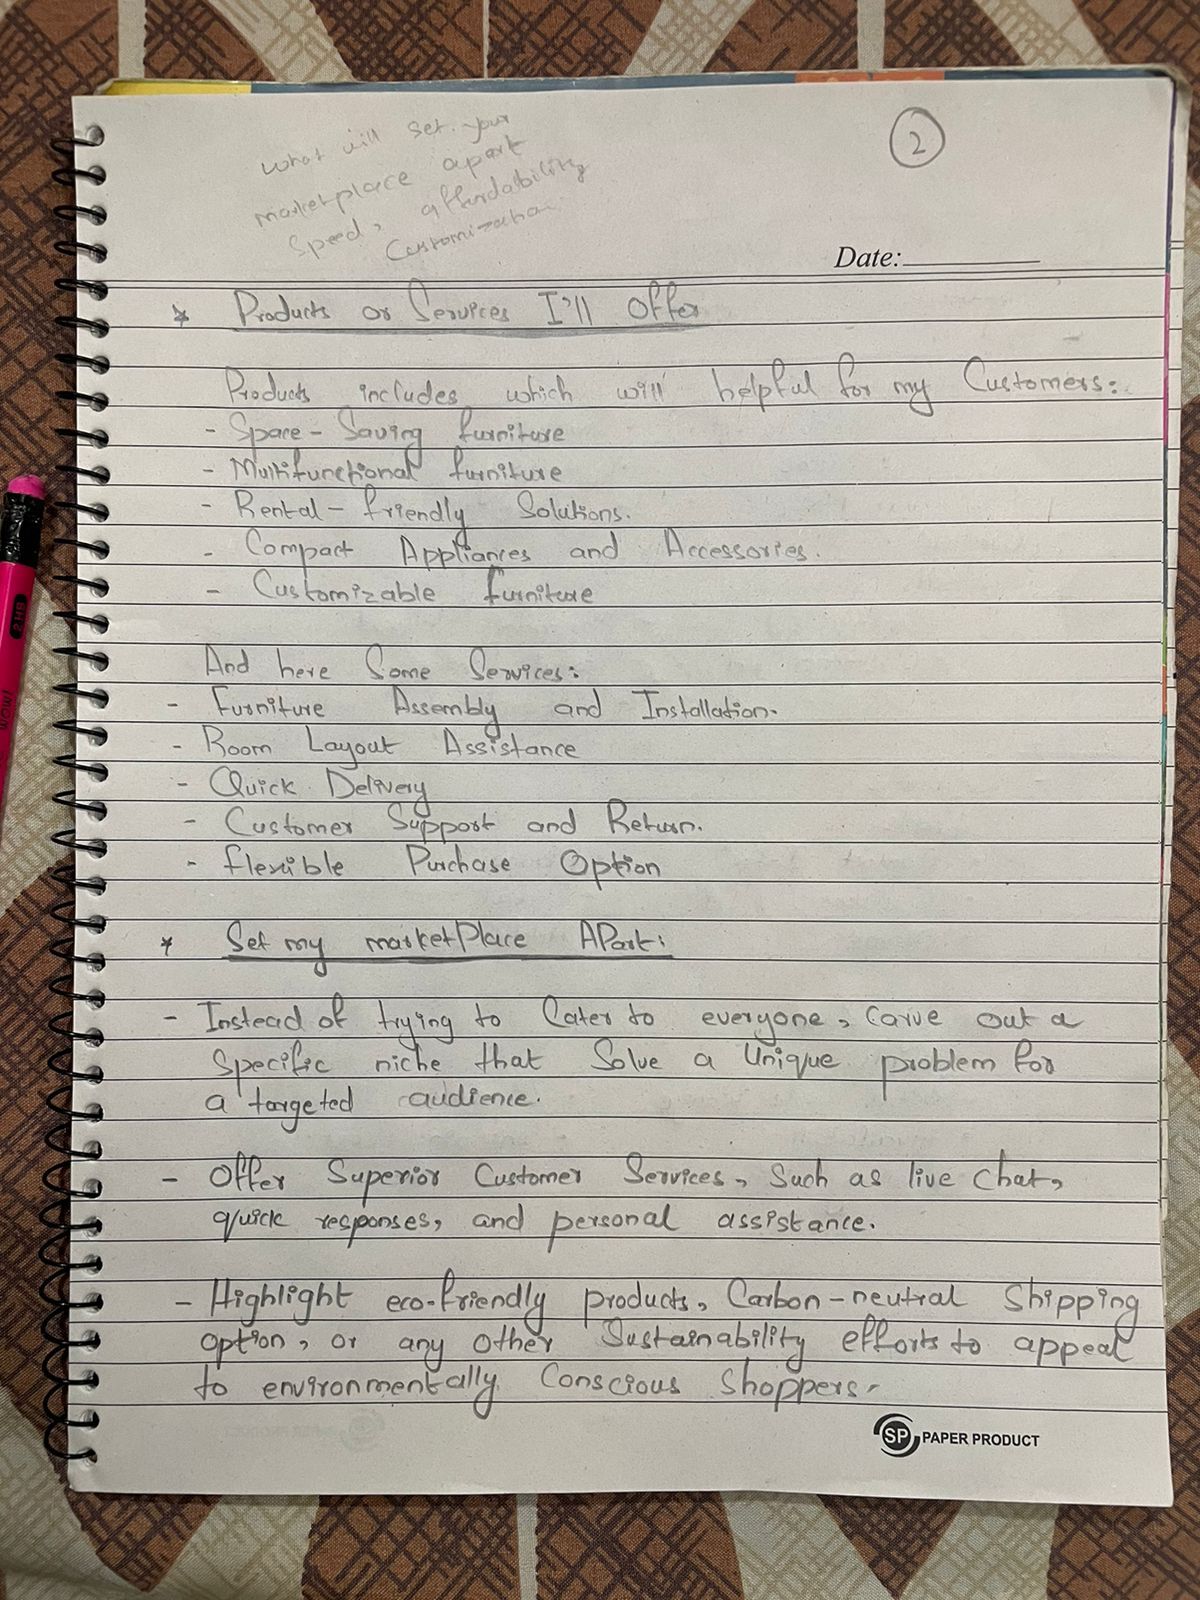 What will set your
marketplace apart
speed, affordability
Customization.
2
Date:
* Products or Services I'll Offer
Products includes which will helpful for my Customers:
- Space-Saving furniture
- Multifunctional furniture
- Rental-friendly Solutions.
- Compact Appliances and Accessories.
- Customizable furniture
And here Some Services:
- Furniture Assembly and Installation.
- Room Layout Assistance
- Quick Delivery
- Customer Support and Return.
- flexible Purchase Option
* Set my marketPlace APart:
- Instead of trying to Cater to everyone, Carve out a
specific niche that Solve a Unique problem for
a targeted audience.
- Offer Superior Customer Services, Such as live chat,
quick responses, and personal assistance.
- Highlight eco-friendly products, Carbon-neutral Shipping
option, or any other Sustainability efforts to appeal
to environmentally Conscious Shoppers.
SP PAPER PRODUCT
2HB
WOW!